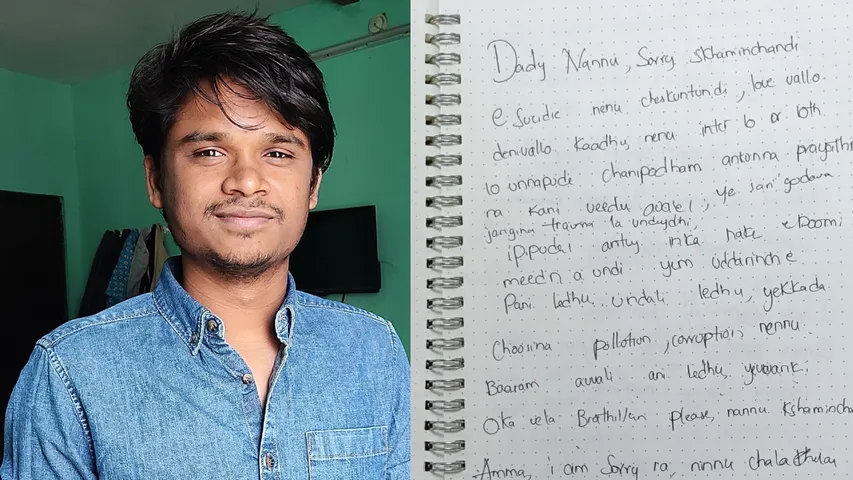 Dady Nannu, Sorry Skhaminchandi
e Sucidie nenu cheskuntundi, love vallo
denivallo kaadhu, nenu inter lo or 10th
lo unnapude chanipodham antonna
ra kani veedu, ye godava
jarigina trauma la undydhi,
ippudai antuy inka naku e boomi
meedn a undi yem uddarinche
Pani ledhu undali ledhu, yekkada
Choosina pollotion, corruption nennu
Baaram avvali ani ledhu, yevvarki
Oka vela Brathiki please, nannu
Amma, i am Sorry ra, ninnu chala